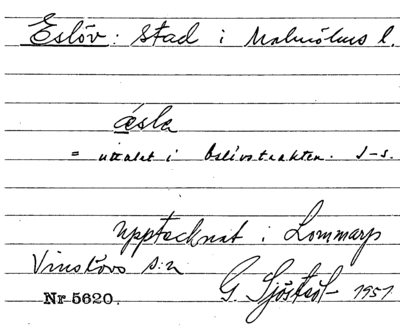 Eslöv: stad i Malmöhus l.
ésla
= uttalet i Eslövstrakten. J-s.
Upptecknat i Lommarp
Vinslövs s:n
G. Sjöstedt 1951
Nr 5620.